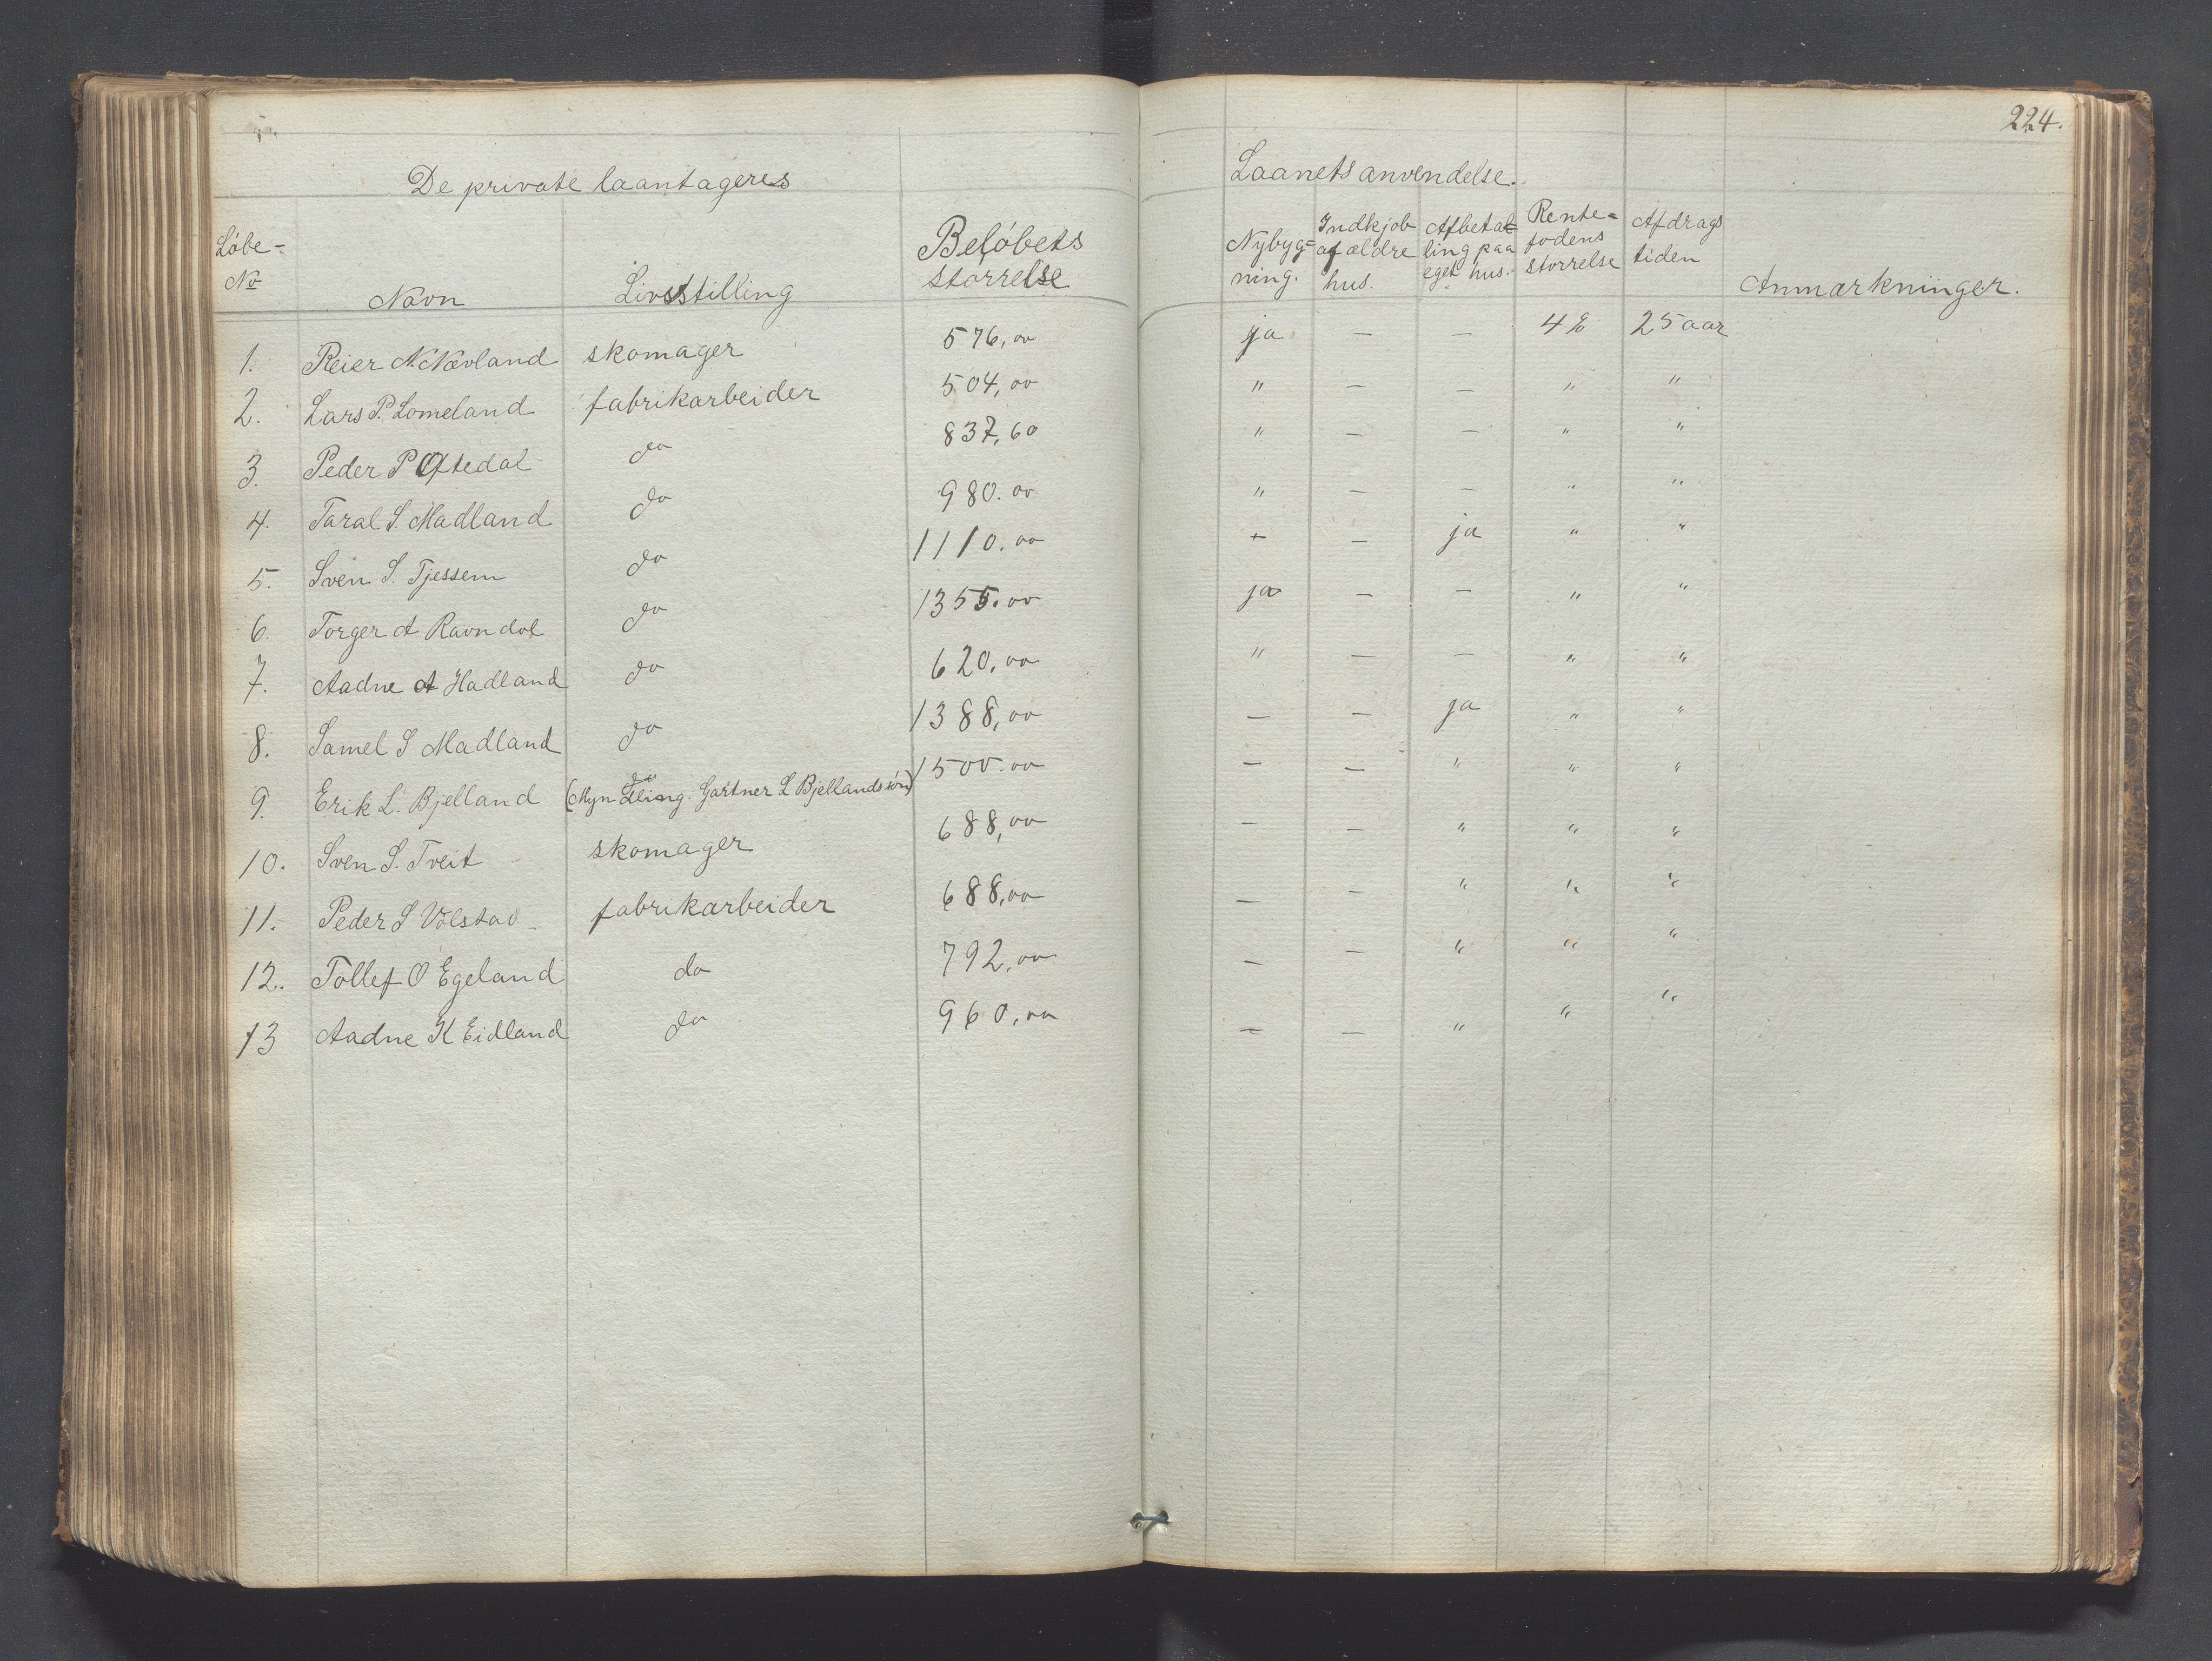 224.
De private laantageres
Laanets anvendelse.
Løbe-
No
Navn
Livsstilling
Beløbets
størrelse
Nybyg=
ning.
Indkjøb
af ældre
hus.
Afbetal=
ling paa
eget hus.
Rente=
fodens
størrelse
Afdrags
tiden
Anmærkninger.
1. Reier N. Nævland skomager 576,00 ja — — 4% 25 aar
2. Lars P. Lomeland fabrikarbeider 504,00 " — — " "
3. Peder P Oftedal do 837,60 " — — " "
4. Taral S. Madland do 980.00 " — — " "
5. Sven S. Tjessem do 1110.00 — — ja " "
6. Torger A Ravndal do 1355.00 ja — — " "
7. Aadne A Hadland do 620,00 " — — " "
8. Samel S Madland do 1388,00 — — ja " "
9. Erik L. Bjelland do (Myn dling. Gartner L Bjellands søn) 1500.00 — — " " "
10. Sven S. Tveit skomager 688,00 — — " " "
11. Peder S Vølstad fabrikarbeider 688,00 — — " " "
12. Tollef O Egeland do 792,00 — — " " "
13 Aadne K Eidland do 960,00 — — " " "